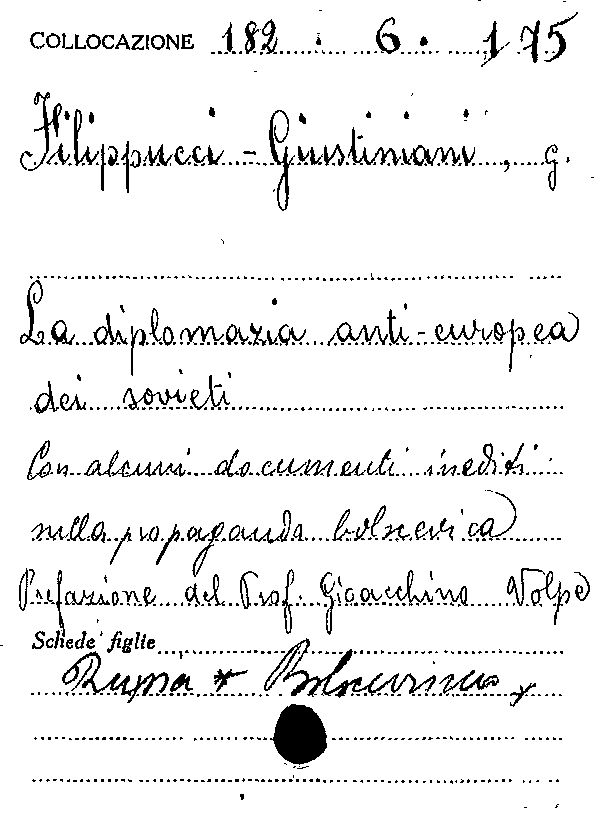 COLLOCAZIONE 182 . 6 . 175
Filippucci - Giustiniani, G.
La diplomazia anti-europea
dei sovieti
Con alcuni documenti inediti
sulla propaganda bolscevica
Prefazione del Prof. Gioacchino Volpe
Schede figlie
Russia * Bolscevismo *